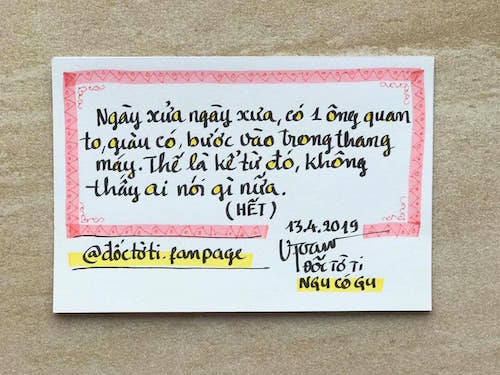 Ngày xửa ngày xưa, có 1 ông quan
to, giàu có, bước vào trong thang
máy. Thế là kể từ đó, không
thấy ai nói gì nữa.
(HẾT)
13.4.2019
@đốctờti.fanpage
ĐỐC TỜ TI
NGU CÓ GU